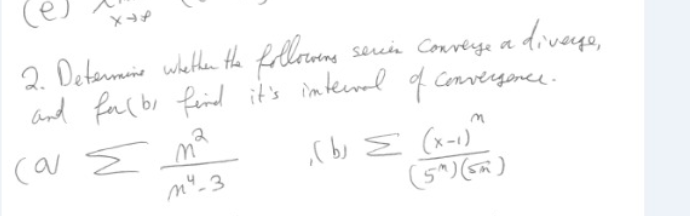 (e) x→∞
2. Determine whether the following series converge or diverge,
and for (b) find it's interval of convergence.
(a) Σ n² / (n⁴-3) , (b) Σ (x-1)ⁿ / (5ⁿ)(5n)